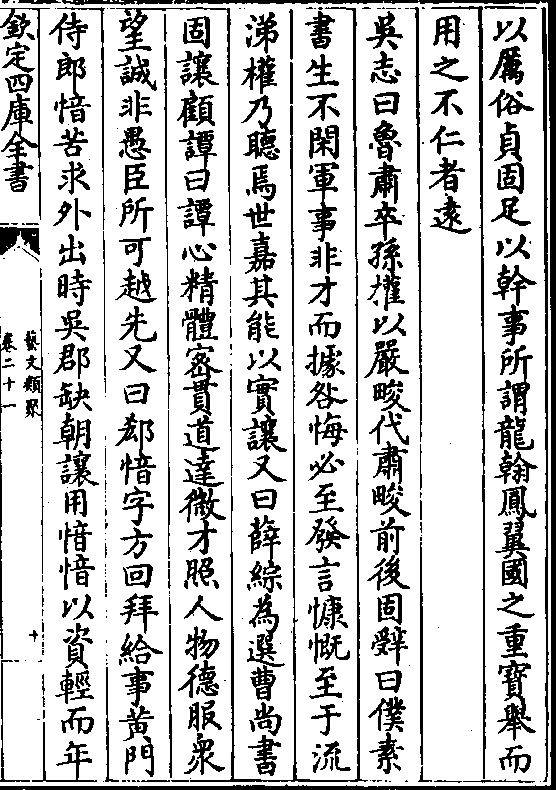 以厲俗貞固足以幹事所謂龍翰鳳翼國之重寶舉而
用之不仁者遠
吳志曰魯肅卒孫權以嚴畯代肅畯前後固辭曰僕素
書生不閑軍事非才而據咎悔必至發言慷慨至于流
涕權乃聽焉世嘉其能以實讓又曰薛綜為選曹尚書
固讓顧譚曰譚心精體密貫道達微才照人物德服衆
望誠非愚臣所可越先又曰郄愔字方回拜給事黃門
侍郎愔苦求外出時吳郡缺朝讓用愔愔以資輕而年
欽定四庫全書
藝文類聚
卷二十一
十